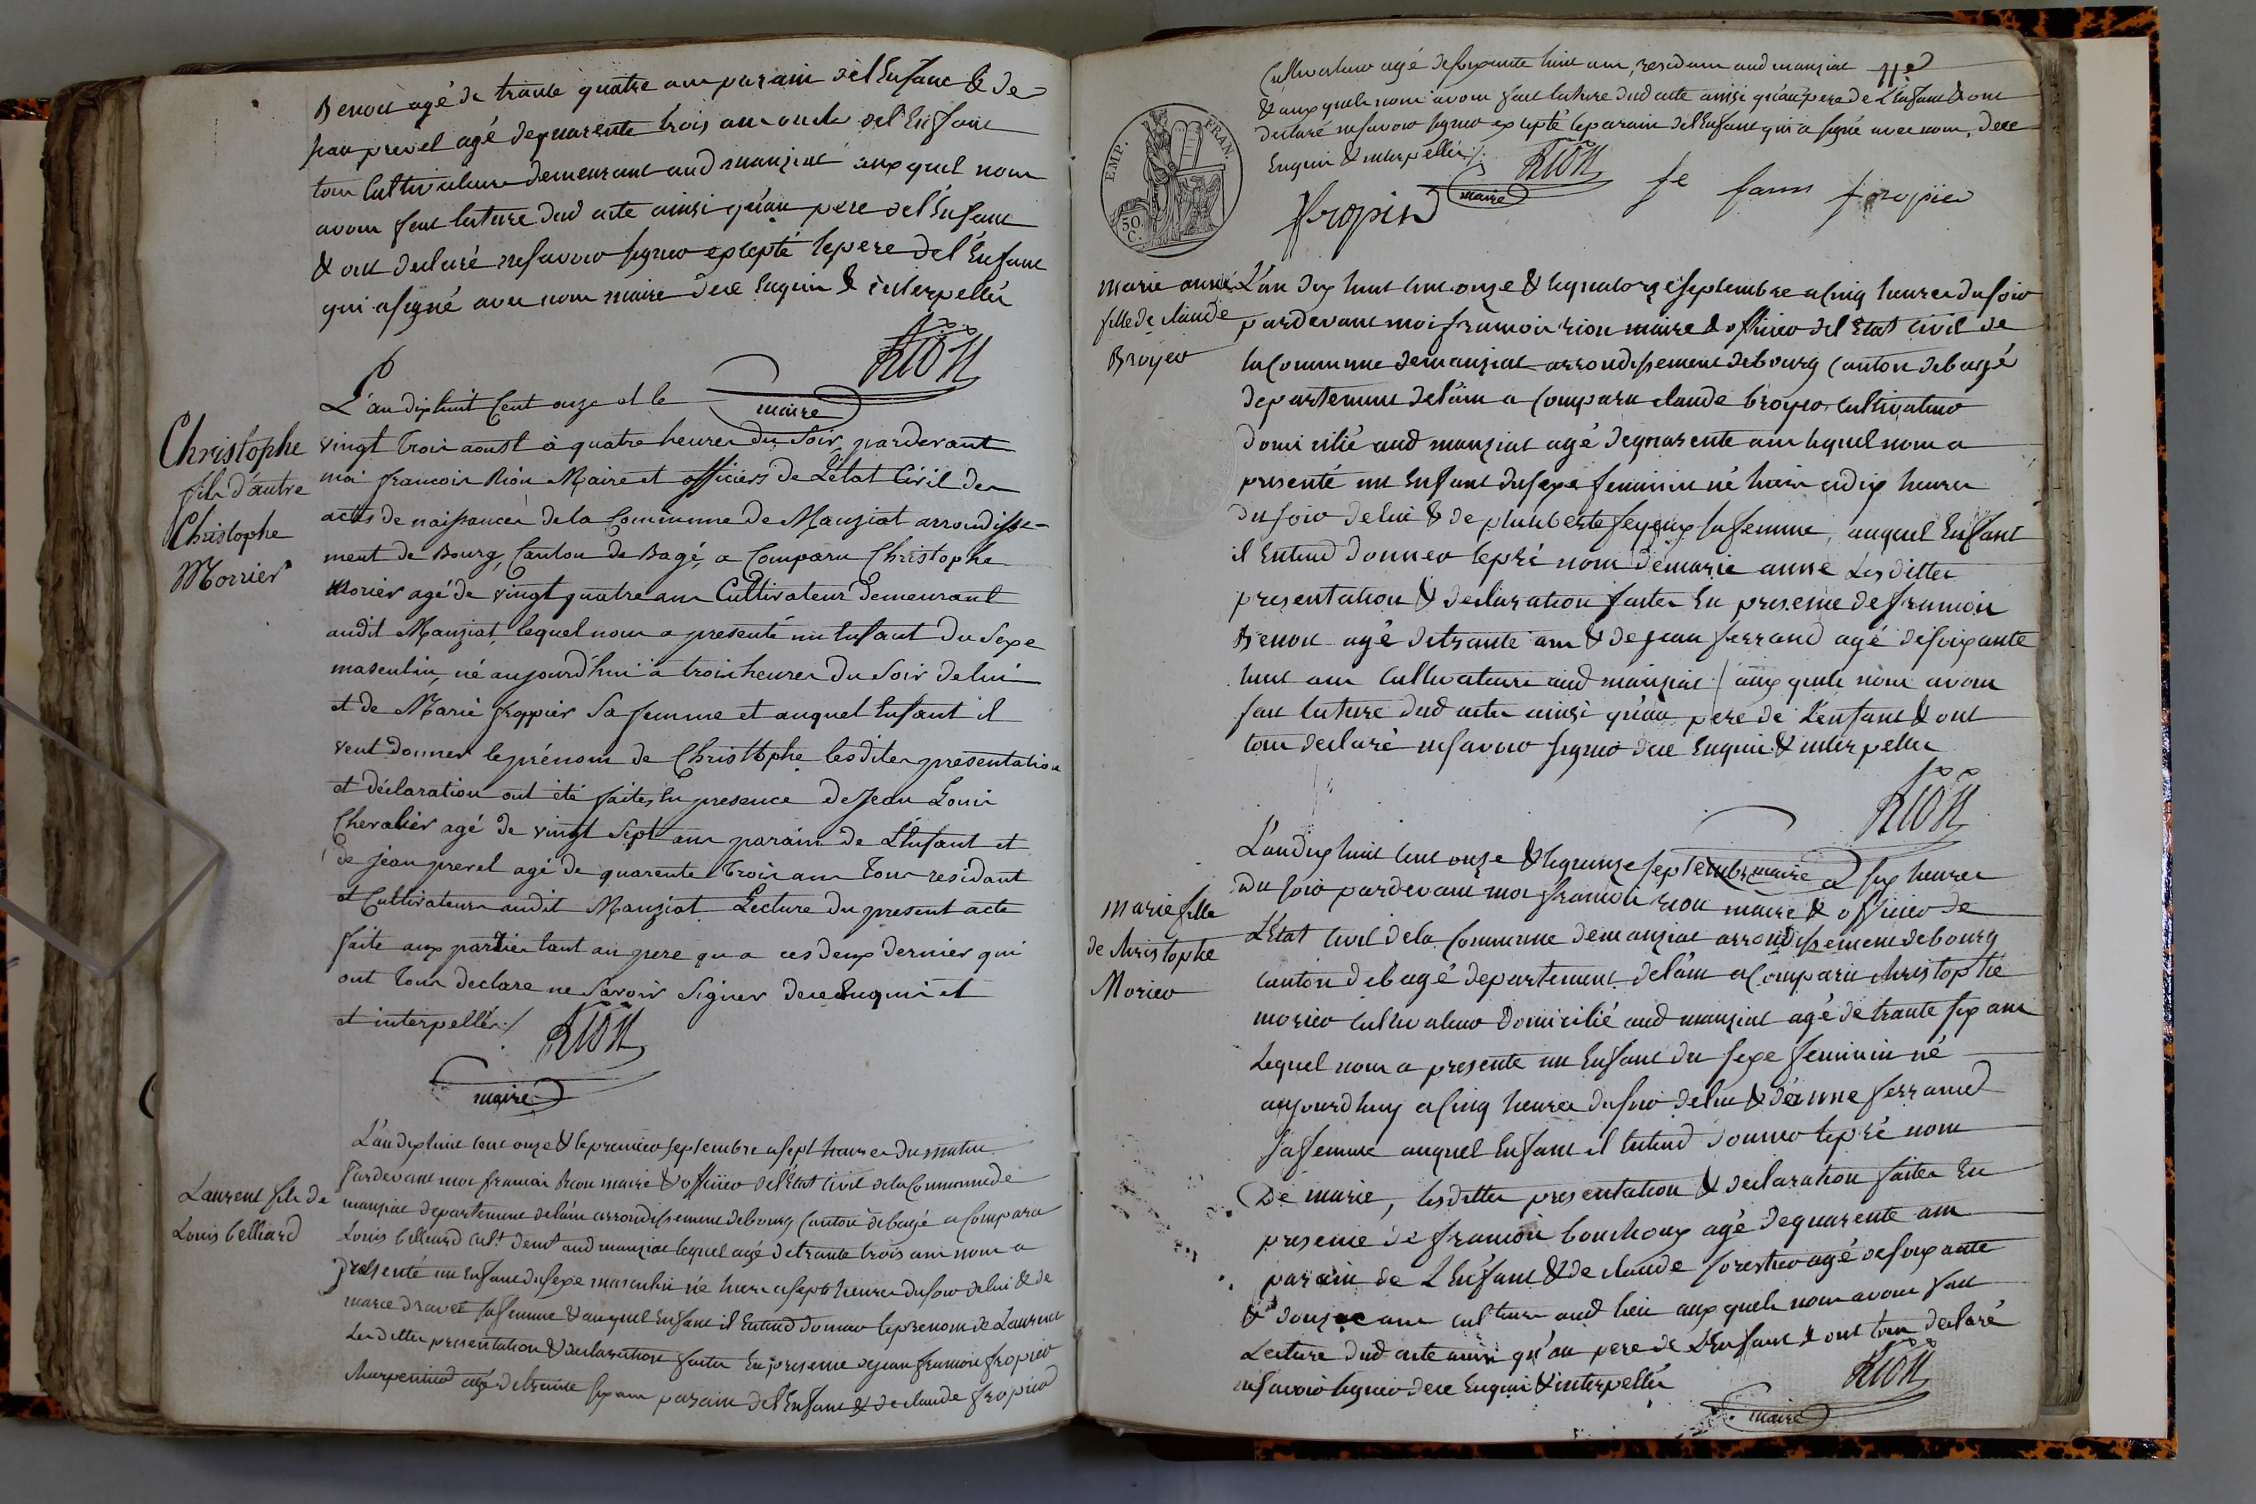 Benoit agé de trante quatre ans parain del Enfant & de
jean prevel agé dequarente trois ans oncle del Enfant
tous Cultivateurs demeurant aud manziat auxquel nous
avons fait lecture dud acte ainsi qu'au pere del Enfant
& ont declaré ne savoir signer excepté le pere del'Enfant
qui a signé avec nous maire dece Enquis & interpellés
Rion
maire
L'an dix huit Cent onze et le
vingt trois aoust à quatre heures du Soir, pardevant
moi francois Rion Maire et officiers de L'état Civil des
actes de naissances de la Commune de Manziat arrondisse-
ment de Bourg, Canton de Bagé, a Comparu Christophe
Morier agé de vingt quatre ans Cultivateur demeurant
audit Manziat, lequel nous a presenté un Enfant Du Sexe
masculin, né aujourd'hui a trois heures Du Soir de lui
et de Marie froppier Sa femme et auquel Enfant il
veut donner le prénom de Christophe les dites presentation
et déclaration ont été faites En presence de Jean Louis
Chevalier agé de vingt Sept ans parain de L'Enfant et
de jean prevel agé de quarente trois ans tous residant
et Cultivateurs audit Manziat Lecture du present acte
faite aux parties tant au pere qu'a ces deux dernier qui
ont tous declare ne Savoir Signer dece Enquis et
et interpellés ./
Rion
maire
Christophe
fils d'autre
Christophe
Morrier
L'an dix huit cent onze & le premier septembre a sept heures du matin
Pardevant moi francois Rion maire & officier del'Etat Civil dela Commune de
manziat departement delain arrondissement debourg Canton debagé a Comparu
Louis belliard Cult. demt aud manziat lequel agé detrante trois ans nous a
presenté un Enfant du sexe masculin né hier a sept heures du soir delui & de
marie dravet sa femme & auquel Enfant il Entend donner le prenom de Laurent
Les dittes presentation & declaration faites En presence dejean francois fropier
charpentier agé detrante six ans parain del'Enfant & de claude fropier
Laurent fils de
Louis belliard
Cultivateur agé desoixante huit ans, residans aud manziat
& auxquels nous avons fait lecture dud acte ainsi qu'au pere de L'Enfant & ont
declaré ne savoir signer excepté le parain del'Enfant qui a signé avec nous, dece
Enquis & interpellés ./.
Rion
maire
fropier
je
EMP. FRAN.
50 C.
marie anne
fille de claude
Broyer
L'an dix huit cent onze & le quatorze septembre a cinq heures du soir
pardevant moi francois rion maire & officier del Etat Civil de
la Commune demanziat arrondissement debourg Canton debagé
departement delain a Comparu claude broyer Cultivateur
domicilié aud manziat agé dequarente ans lequel nous a
presenté un Enfant du sexe feminin né hier a dix heures
du soir delui & de philiberte feyeux sa femme, auquel Enfant
il Entend donner le pré nom de marie anne Les dittes
presentation & declaration faites En presence de francois
Benoit agé detrante ans & de jean ferrand agé desoixante
huit ans Cultivateurs aud manziat / auxquels nous avons
fait lecture dud actes ainsi qu'au pere de L'enfant & ont
tous declaré ne savoir signer dece Enquis & interpellés
Rion
maire
L'an dix huit cent onze & le quinze septembre a six heures
du soir pardevant moi francois rion maire & officier de
L'Etat Civil dela Commune demanziat arrondissement debourg
canton debagé departement delain a Comparu christophe
morier Cultivateur domicilié aud manziat agé de trante six ans
Lequel nous a presente un Enfant du sexe feminin né
aujourdhuy a cinq heures du soir delui & d'anne ferrand
sa femme auquel Enfant il Entend donner le pré nom
De marie, les dittes presentation & declaration faites En
presence de francois bouchoux agé dequarente ans
parain de L'Enfant & de claude forestier agé desoixante
& douze ans culteurs aud lieu auxquels nous avons fait
Lecture dud acte ainsi qu'au pere de L'Enfant & ont tous declaré
ne savoir signer dece Enquis & interpellés
Rion
maire
marie fille
de christophe
Morier